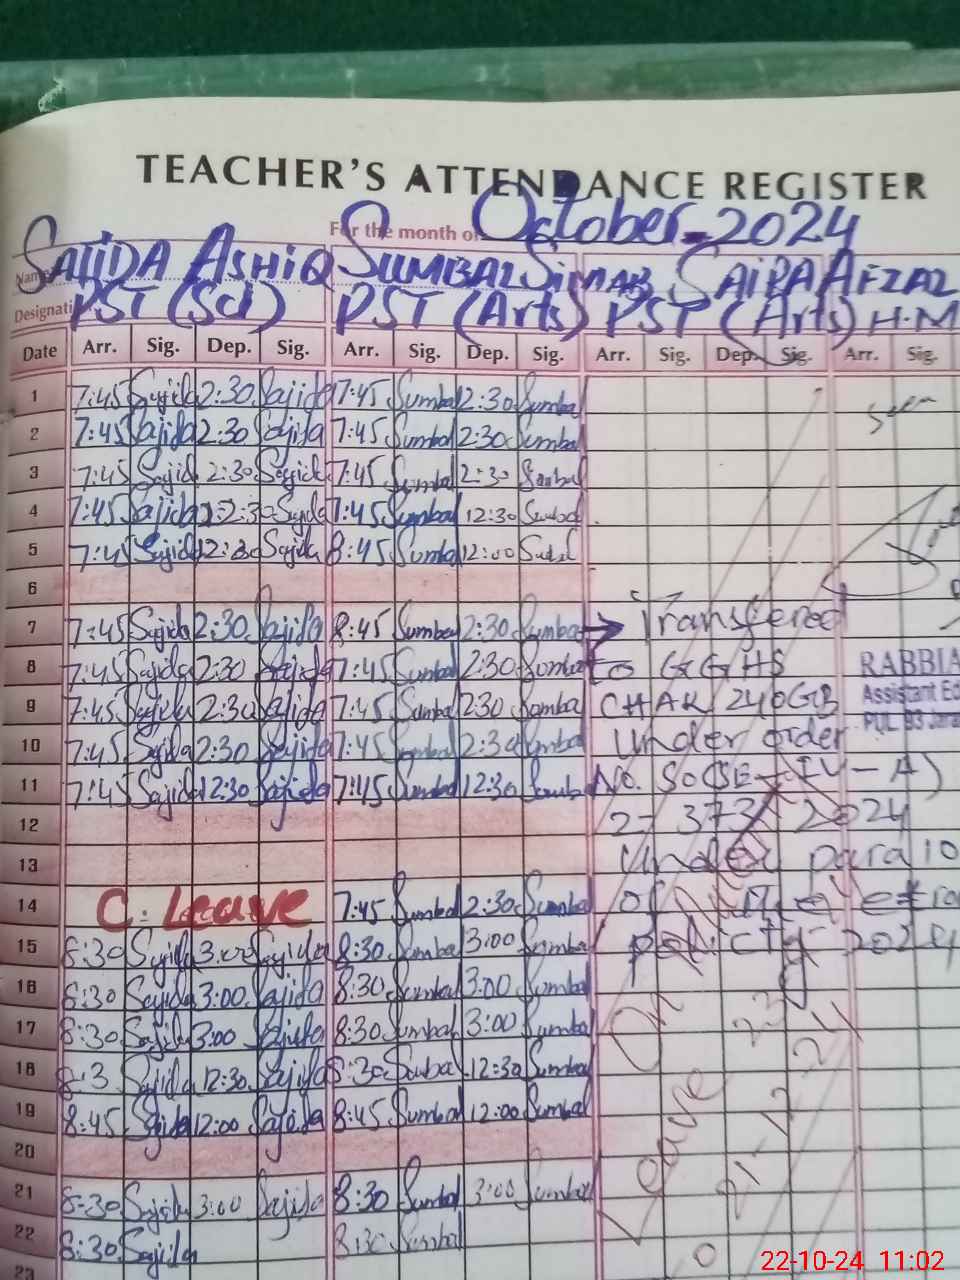 TEACHER'S ATTENDANCE REGISTER
For the month of October 2024
Name SAJIDA ASHIQ SUMBAL SIMAB SAIRA AFZAL
Designati PST (Sci) PST (Arts) PST (Arts) H.M
Date Arr. Sig. Dep. Sig. Arr. Sig. Dep. Sig. Arr. Sig. Dep. Sig. Arr. Sig.
1 7:45 Sajida 2:30 Sajida 7:45 Sumbal 2:30 Sumbal Seen
2 7:45 Sajida 2:30 Sajida 7:45 Sumbal 2:30 Sumbal
3 7:45 Sajida 2:30 Sajida 7:45 Sumbal 2:30 Sumbal
4 7:45 Sajida 12:30 Sajida 7:45 Sumbal 12:30 Sumbal
5 7:45 Sajida 12:30 Sajida 8:45 Sumbal 12:00 Sumbal
6
7 7:45 Sajida 2:30 Sajida 8:45 Sumbal 2:30 Sumbal → Transfered
8 7:45 Sajida 2:30 Sajida 7:45 Sumbal 2:30 Sumbal to GGHS RABBIA
9 7:45 Sajida 2:30 Sajida 7:45 Sumbal 2:30 Sumbal CHAK 240GB Assistant Ed
10 7:45 Sajida 2:30 Sajida 7:45 Sumbal 2:30 Sumbal Under order PUL 93 Jara
11 7:45 Sajida 12:30 Sajida 7:45 Sumbal 12:30 Sumbal No. SO(SE-IV-A)
12 2-373/2024
13 Under para 10
14 C. Leave 7:45 Sumbal 2:30 Sumbal of
15 8:30 Sajida 3:00 Sajida 8:30 Sumbal 3:00 Sumbal policy 2024
16 8:30 Sajida 3:00 Sajida 8:30 Sumbal 3:00 Sumbal
17 8:30 Sajida 3:00 Sajida 8:30 Sumbal 3:00 Sumbal
18 8:3 Sajida 12:30 Sajida 8:30 Sumbal 12:30 Sumbal
19 8:45 Sajida 12:00 Sajida 8:45 Sumbal 12:00 Sumbal
20
21 8:30 Sajida 3:00 Sajida 8:30 Sumbal 3:00 Sumbal
22 8:30 Sajida 8:30 Sumbal
23
On Leave
22-10-24 11:02